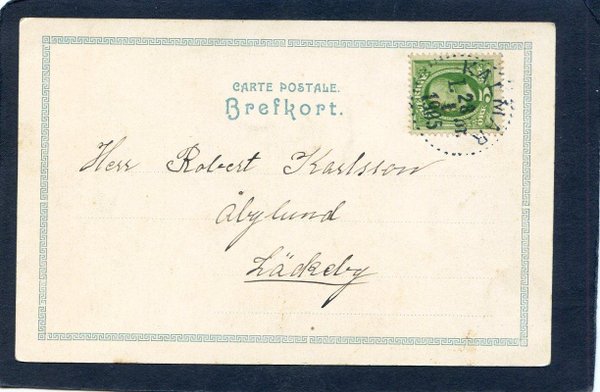 CARTE POSTALE.
Brefkort.
KALMAR
1905
Herr Robert Karlsson
Åbylund
Läckeby